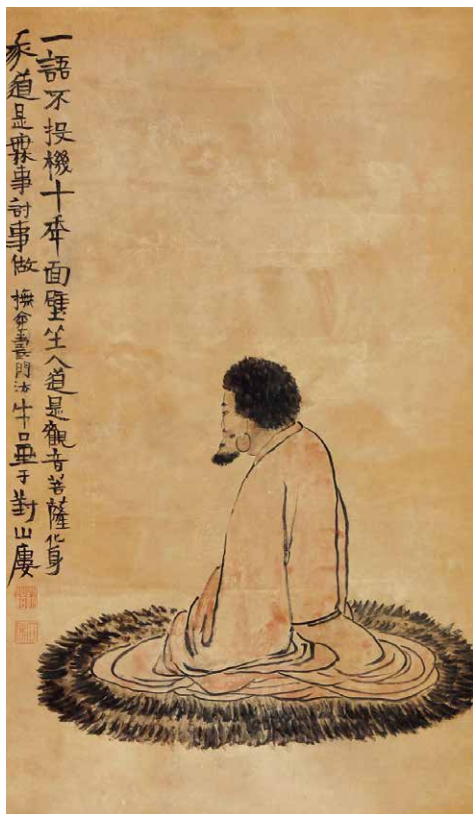 一語不投機十年面壁坐人道是觀音菩薩化身
我道是無事討事做 橅金壽門法 于對山廔